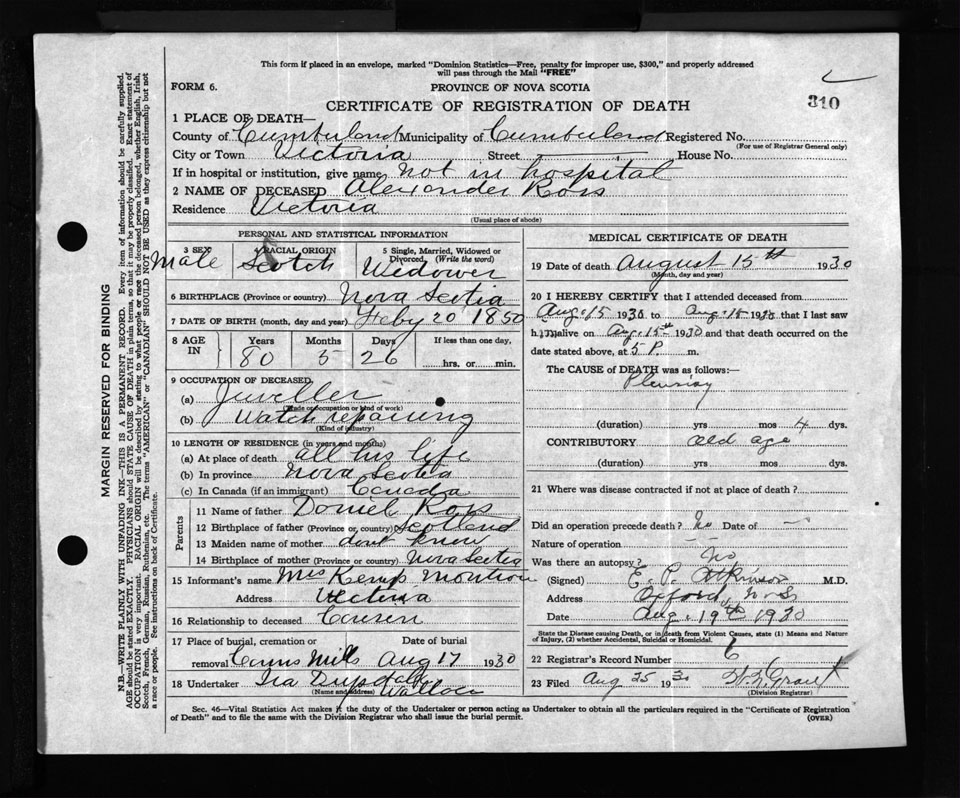 This form if placed in an envelope, marked "Dominion Statistics—Free, penalty for improper use, $300," and properly addressed
will pass through the Mail "FREE"
FORM 6.
PROVINCE OF NOVA SCOTIA
310
CERTIFICATE OF REGISTRATION OF DEATH
1 PLACE OF DEATH—
County of Cumberland Municipality of Cumberland Registered No.
(For use of Registrar General only)
City or Town Victoria Street House No.
If in hospital or institution, give name not in hospital
2 NAME OF DECEASED Alexander Ross
Residence Victoria
(Usual place of abode)
PERSONAL AND STATISTICAL INFORMATION
3 SEX Male
4 RACIAL ORIGIN Scotch
5 Single, Married, Widowed or Divorced, (Write the word) Widower
6 BIRTHPLACE (Province or country) Nova Scotia
7 DATE OF BIRTH (month, day and year) Feby 20 1850
8 AGE IN Years 80 Months 5 Days 26 If less than one day, hrs. or min.
9 OCCUPATION OF DECEASED
(a) Juveller
(Trade or occupation or kind of work)
(b) Watch repairing
(Kind of industry)
10 LENGTH OF RESIDENCE (in years and months)
(a) At place of death all his life
(b) In province Nova Scotia
(c) In Canada (if an immigrant) Canada
Parents
11 Name of father Daniel Ross
12 Birthplace of father (Province or country) Scotland
13 Maiden name of mother dont know
14 Birthplace of mother (Province or country) Nova Scotia
15 Informant's name Mrs Kemp
Address Victoria
16 Relationship to deceased Cousin
17 Place of burial, cremation or removal Mills Date of burial Aug 17 1930
18 Undertaker Ira
(Name and address) Wallace
MEDICAL CERTIFICATE OF DEATH
19 Date of death August 15th 1930
(Month, day and year)
20 I HEREBY CERTIFY that I attended deceased from
Aug. 15 1930 to Aug. 15 1930 that I last saw
him alive on Aug. 15th 1930 and that death occurred on
date stated above, at 5 P. m.
The CAUSE of DEATH was as follows:—
Pleurisy
(duration) yrs mos 4 dys.
CONTRIBUTORY old age
(duration) yrs mos dys.
21 Where was disease contracted if not at place of death?
Did an operation precede death? No Date of
Nature of operation
Was there an autopsy? No
(Signed) E. P. Atkinson M.D.
Address Oxford N.S.
Date Aug. 19th 1930
State the Disease causing Death, or in death from Violent Causes, state (1) Means and Nature
of Injury, (2) whether Accidental, Suicidal or Homicidal.
22 Registrar's Record Number 6
23 Filed Aug 25 1930 Grant
(Division Registrar)
Sec. 46—Vital Statistics Act makes it the duty of the Undertaker or person acting as Undertaker to obtain all the particulars required in the "Certificate of Registration
of Death" and to file the same with the Division Registrar who shall issue the burial permit.
(OVER)
MARGIN RESERVED FOR BINDING
N.B.—WRITE PLAINLY WITH UNFADING INK—THIS IS A PERMANENT RECORD. Every item of information should be carefully supplied.
AGE should be stated EXACTLY. PHYSICIANS should STATE CAUSE OF DEATH in plain terms, so that it may be properly classified. Exact statement of
OCCUPATION is very important. RACIAL ORIGIN will be described by stating to what people or race the deceased person belonged, whether English, Irish,
Scotch, French, German, Russian, Ruthenian, etc. The terms "AMERICAN" or "CANADIAN" SHOULD NOT BE USED as they express citizenship but not
a race or people. See instructions on back of Certificate.